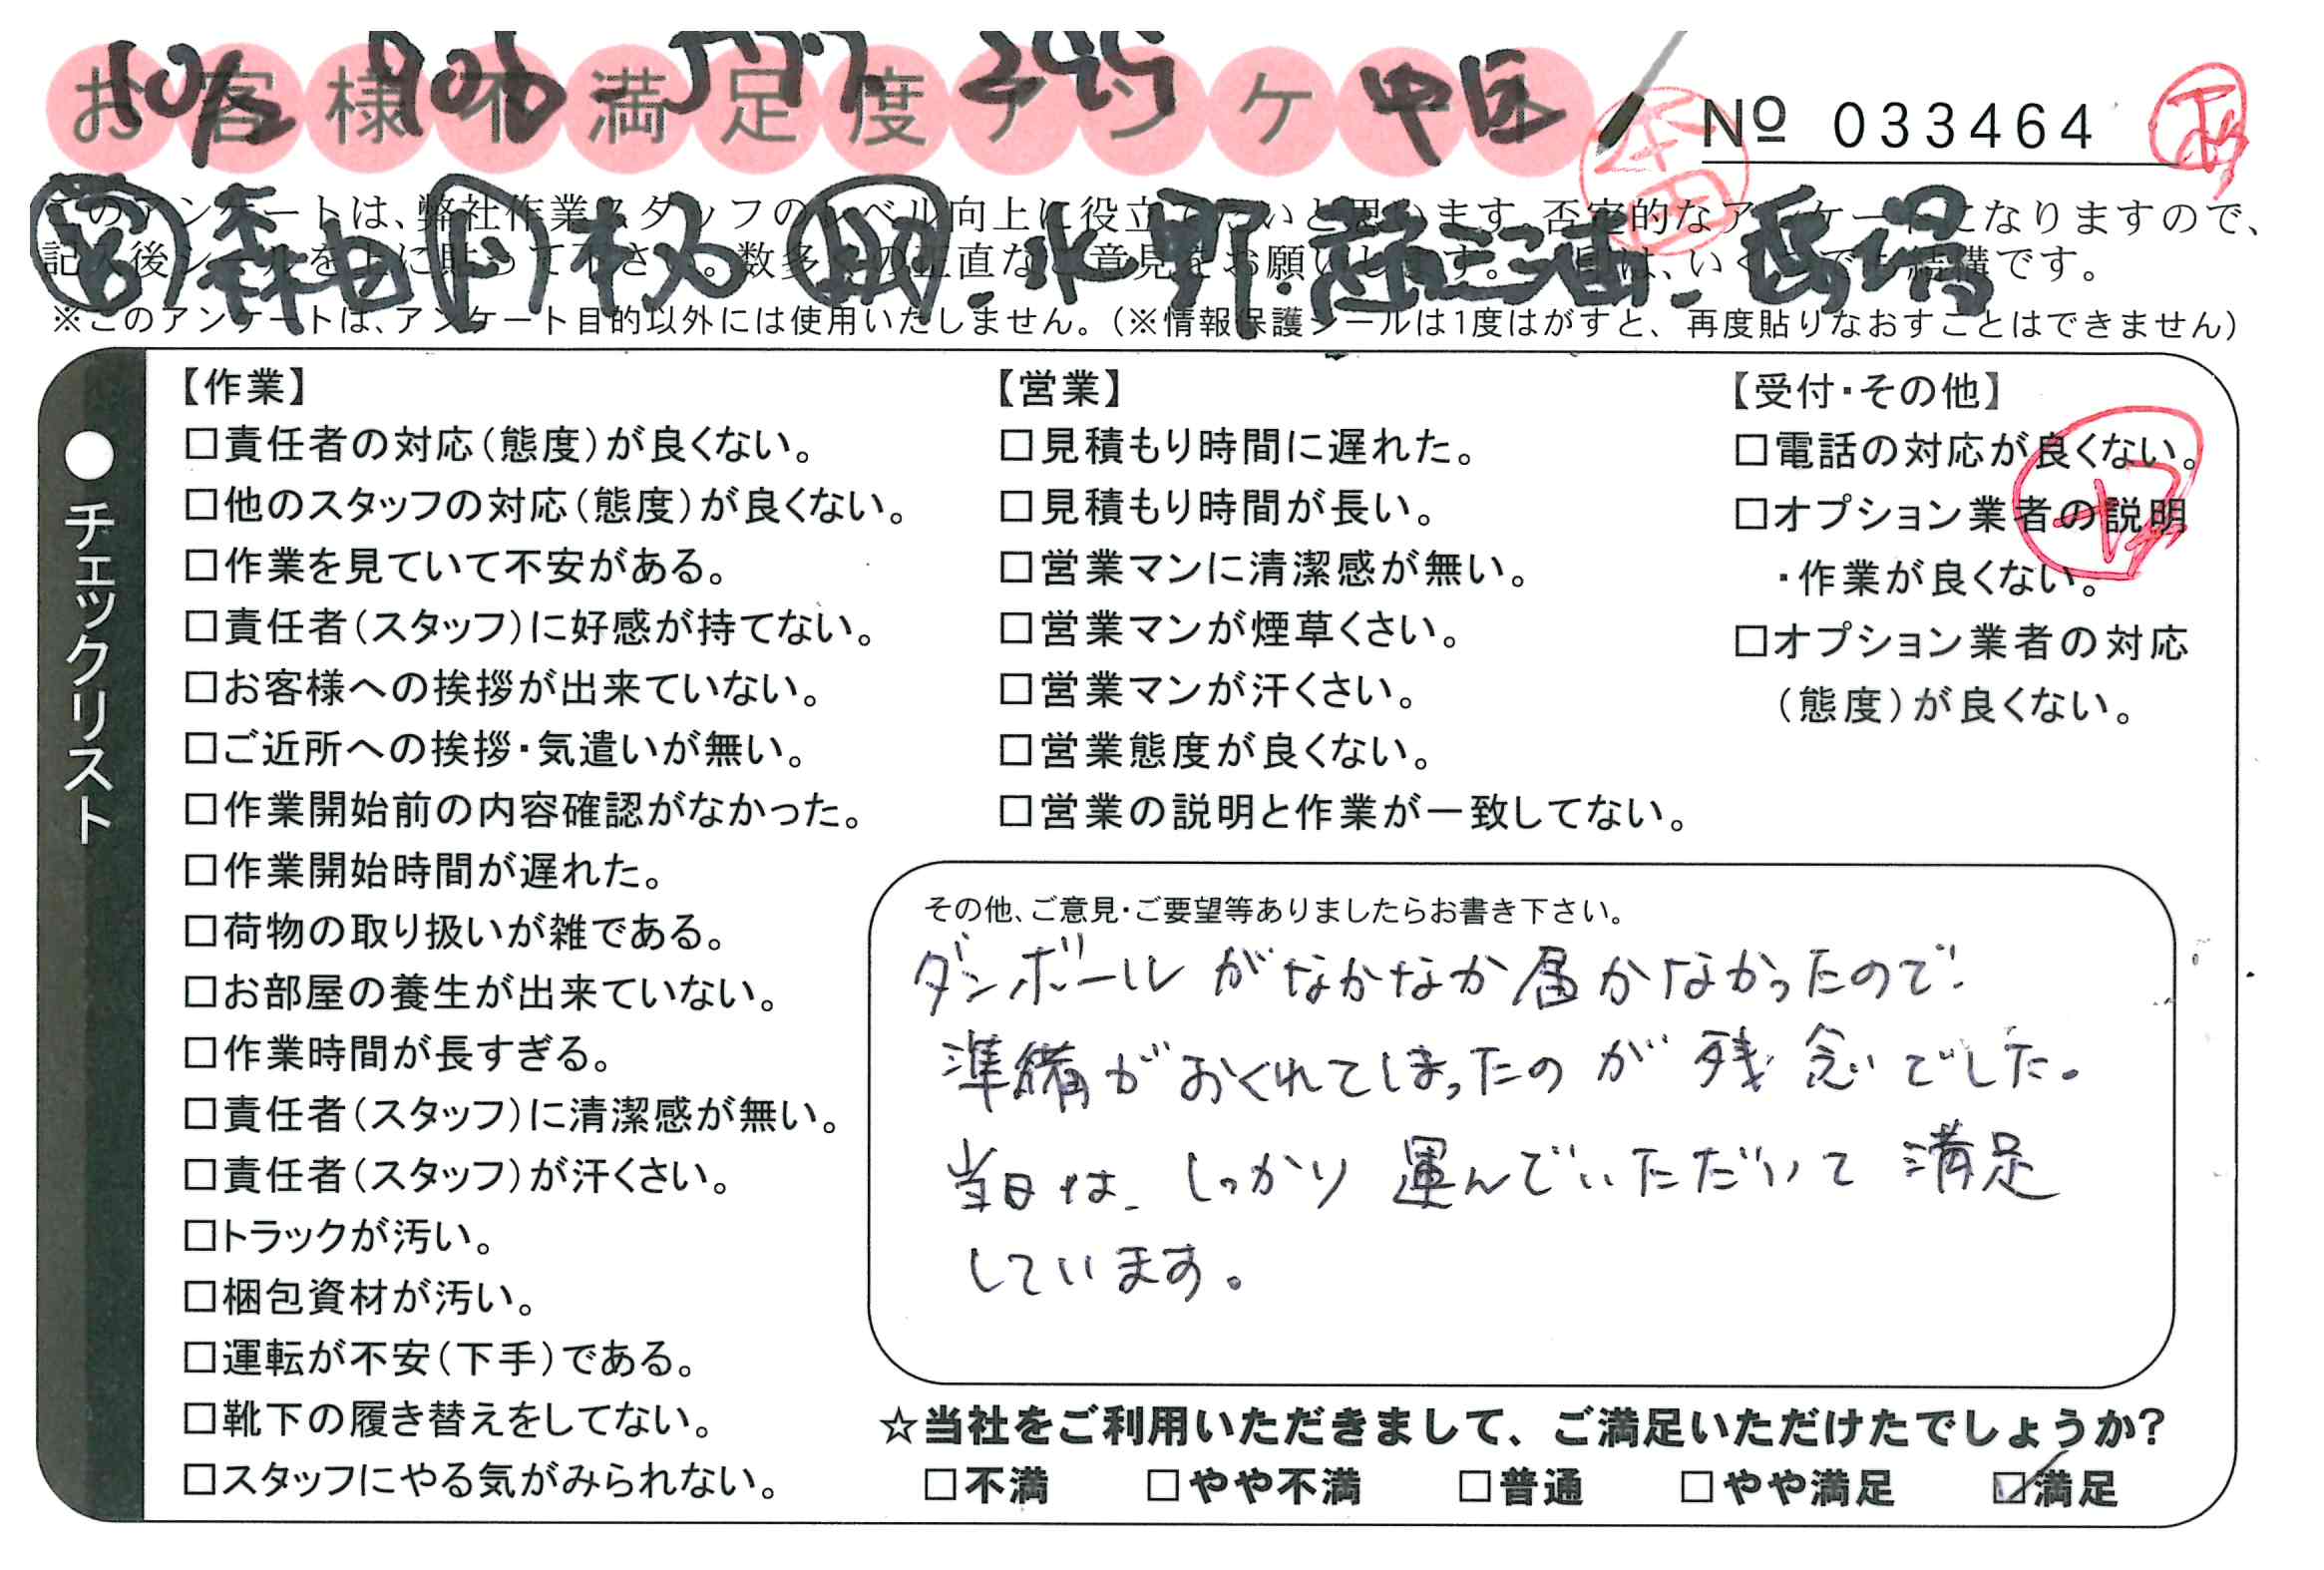 お客様不満足度アンケート
10/2
№ 033464
このアンケートは、弊社作業スタッフのレベル向上に役立てたいと思います。否定的なアンケートになりますので、
記入後シールを上に貼って下さい。数多くの正直なご意見をお願いします。 は、いくつでも結構です。
※このアンケートは、アンケート目的以外には使用いたしません。(※情報保護シールは1度はがすと、再度貼りなおすことはできません)
●チェックリスト
【作業】
□責任者の対応(態度)が良くない。
□他のスタッフの対応(態度)が良くない。
□作業を見ていて不安がある。
□責任者(スタッフ)に好感が持てない。
□お客様への挨拶が出来ていない。
□ご近所への挨拶・気遣いが無い。
□作業開始前の内容確認がなかった。
□作業開始時間が遅れた。
□荷物の取り扱いが雑である。
□お部屋の養生が出来ていない。
□作業時間が長すぎる。
□責任者(スタッフ)に清潔感が無い。
□責任者(スタッフ)が汗くさい。
□トラックが汚い。
□梱包資材が汚い。
□運転が不安(下手)である。
□靴下の履き替えをしてない。
□スタッフにやる気がみられない。
【営業】
□見積もり時間に遅れた。
□見積もり時間が長い。
□営業マンに清潔感が無い。
□営業マンが煙草くさい。
□営業マンが汗くさい。
□営業態度が良くない。
□営業の説明と作業が一致してない。
【受付・その他】
□電話の対応が良くない。
□オプション業者の説明
・作業が良くない。
□オプション業者の対応
(態度)が良くない。
その他、ご意見・ご要望等ありましたらお書き下さい。
ダンボールがなかなか届かなかったので
準備がおくれてしまったのが残念でした。
当日は、しっかり運んでいただいて満足
しています。
☆当社をご利用いただきまして、ご満足いただけたでしょうか?
□不満 □やや不満 □普通 □やや満足 ☑満足